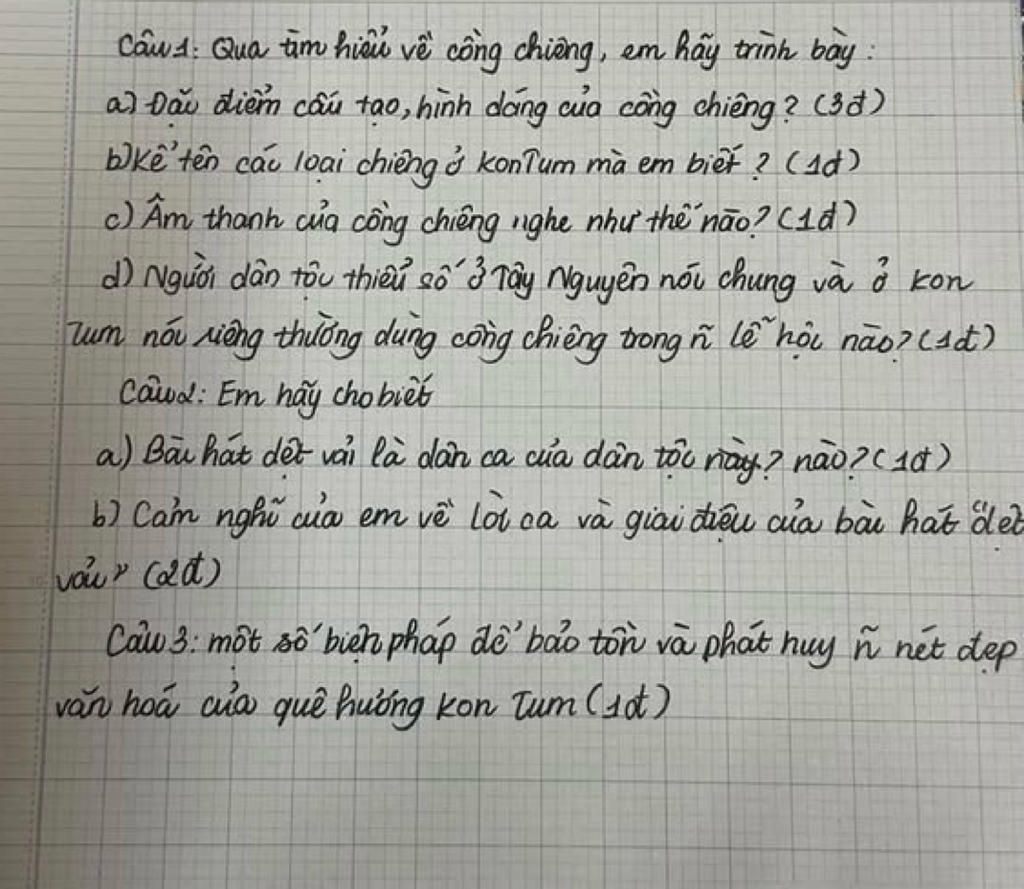 Câu 1: Qua tìm hiểu về cồng chiêng, em hãy trình bày:
a) Đặc điểm cấu tạo, hình dáng của cồng chiêng? (3đ)
b) Kể tên các loại chiêng ở KonTum mà em biết? (1đ)
c) Âm thanh của cồng chiêng nghe như thế nào? (1đ)
d) Người dân tộc thiểu số ở Tây Nguyên nói chung và ở Kon
Tum nói riêng thường dùng cồng chiêng trong ñ lễ hội nào? (1đ)
Câu 2: Em hãy cho biết
a) Bài hát dệt vải là dân ca của dân tộc này? nào? (1đ)
b) Cảm nghĩ của em về lời ca và giai điệu của bài hát "dệt
vải" (2đ)
Câu 3: một số biện pháp để bảo tồn và phát huy ñ nét đẹp
văn hoá của quê hương Kon Tum (1đ)